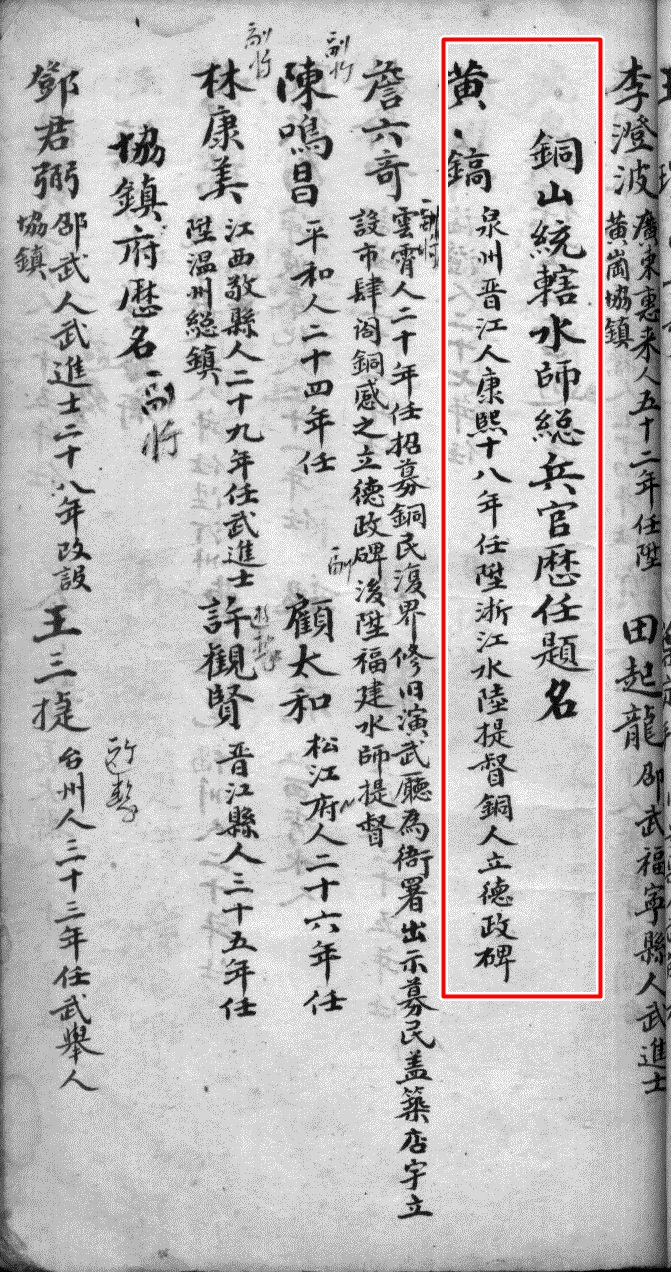 李澄波 廣東惠来人五十二年任陞
黃崗協鎮
田起龍 邵武福寧縣人武進士
銅山統轄水師総兵官歴任題名
黃、鎬 泉州晋江人康熙十八年任陞浙江水陸提督銅人立德政碑
詹六奇 副將
雲霄人二十年任招募銅民復界修旧演武廳為衙署出示募民盖築店宇立
設市肆阁銅感之立德政碑後陞福建水師提督
陳鳴昌 副将 平和人二十四年任
顧太和 副 松江府人二十六年任
林康美 副将 江西敬縣人二十九年任武進士
陞温州総鎮
許觀賢 遊擊 晋江縣人三十五年任
協鎮府歴名 副将
鄧君弼 邵武人武進士二十八年改設
協鎮
王三捷 台州人三十三年任武舉人